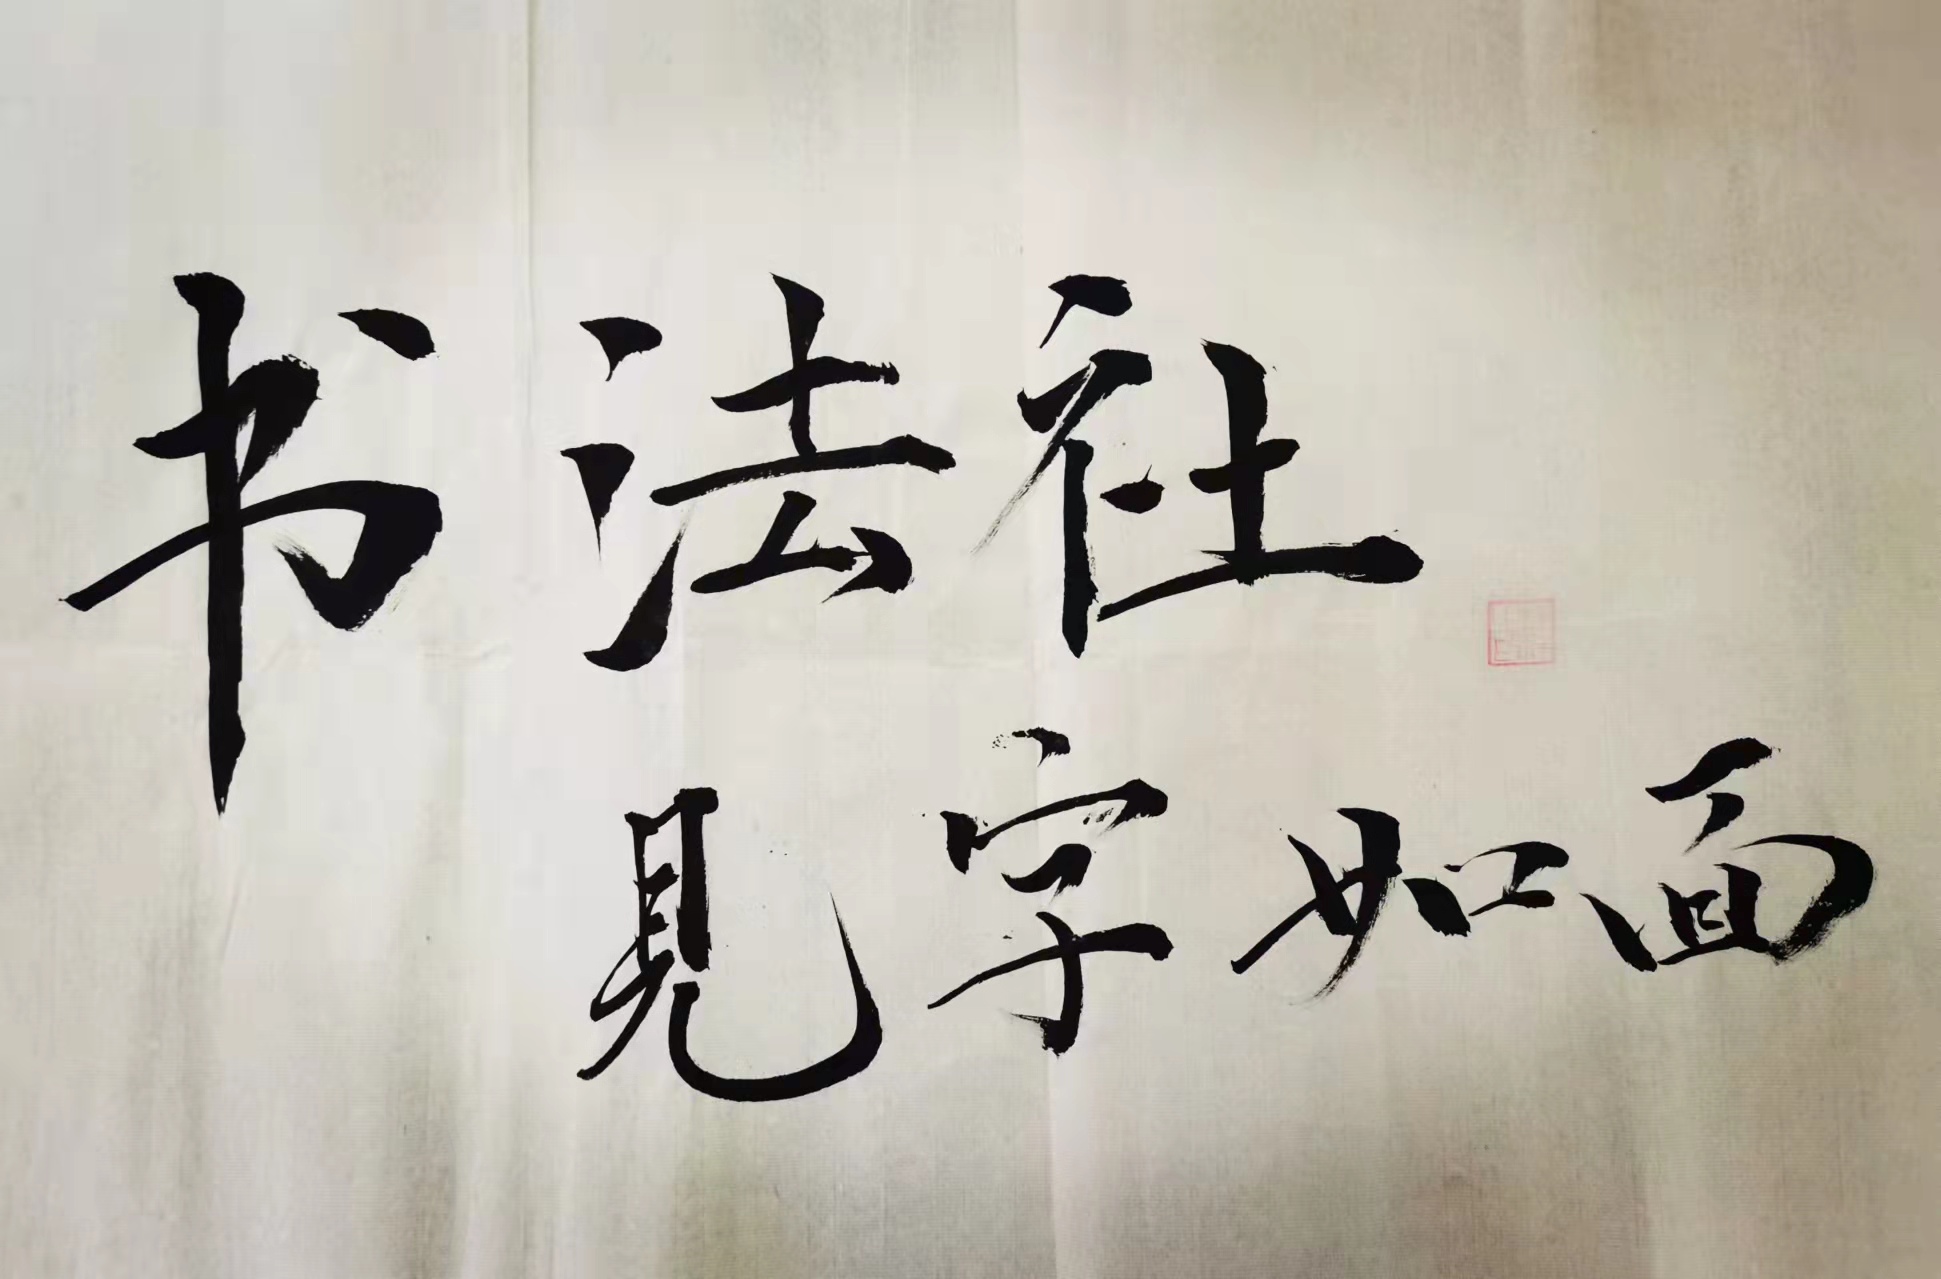 书法社
見字如面